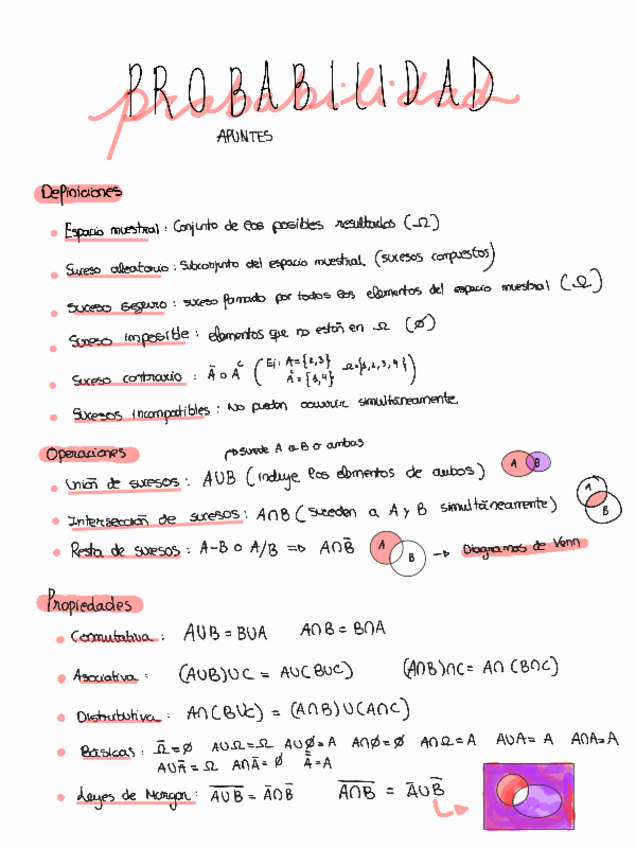 PROBABILIDAD
probabilidad
APUNTES
Definiciones
• Espacio muestral: Conjunto de los posibles resultados (Ω)
• Suceso aleatorio: Subconjunto del espacio muestral (sucesos compuestos)
• Suceso seguro: suceso formado por todos los elementos del espacio muestral (Ω)
• Suceso imposible: elementos que no están en Ω (∅)
• Suceso contrario: Ā o Aᶜ (Ej: A={2,3} Ω={1,2,3,4}
Ā={1,4})
• Sucesos incompatibles: No pueden ocurrir simultáneamente
Operaciones
↱ sucede A o B o ambas
• Unión de sucesos: A∪B (incluye los elementos de ambos) A B
• Intersección de sucesos: A∩B (suceden a A y B simultáneamente) A B
• Resta de sucesos: A-B o A/B => A∩B̄ A B → Diagramas de Venn
Propiedades
• Conmutativa: A∪B = B∪A A∩B = B∩A
• Asociativa: (A∪B)∪C = A∪(B∪C) (A∩B)∩C = A∩(B∩C)
• Distributiva: A∩(B∪C) = (A∩B)∪(A∩C)
• Básicas: Ω̄=∅ A∪Ω=Ω A∪∅=A A∩∅=∅ A∩Ω=A A∪A=A A∩A=A
A∪Ā=Ω A∩Ā=∅ A̿=A
• Leyes de Morgan: A̅∪̅B̅ = Ā∩B̄ A̅∩̅B̅ = Ā∪B̄